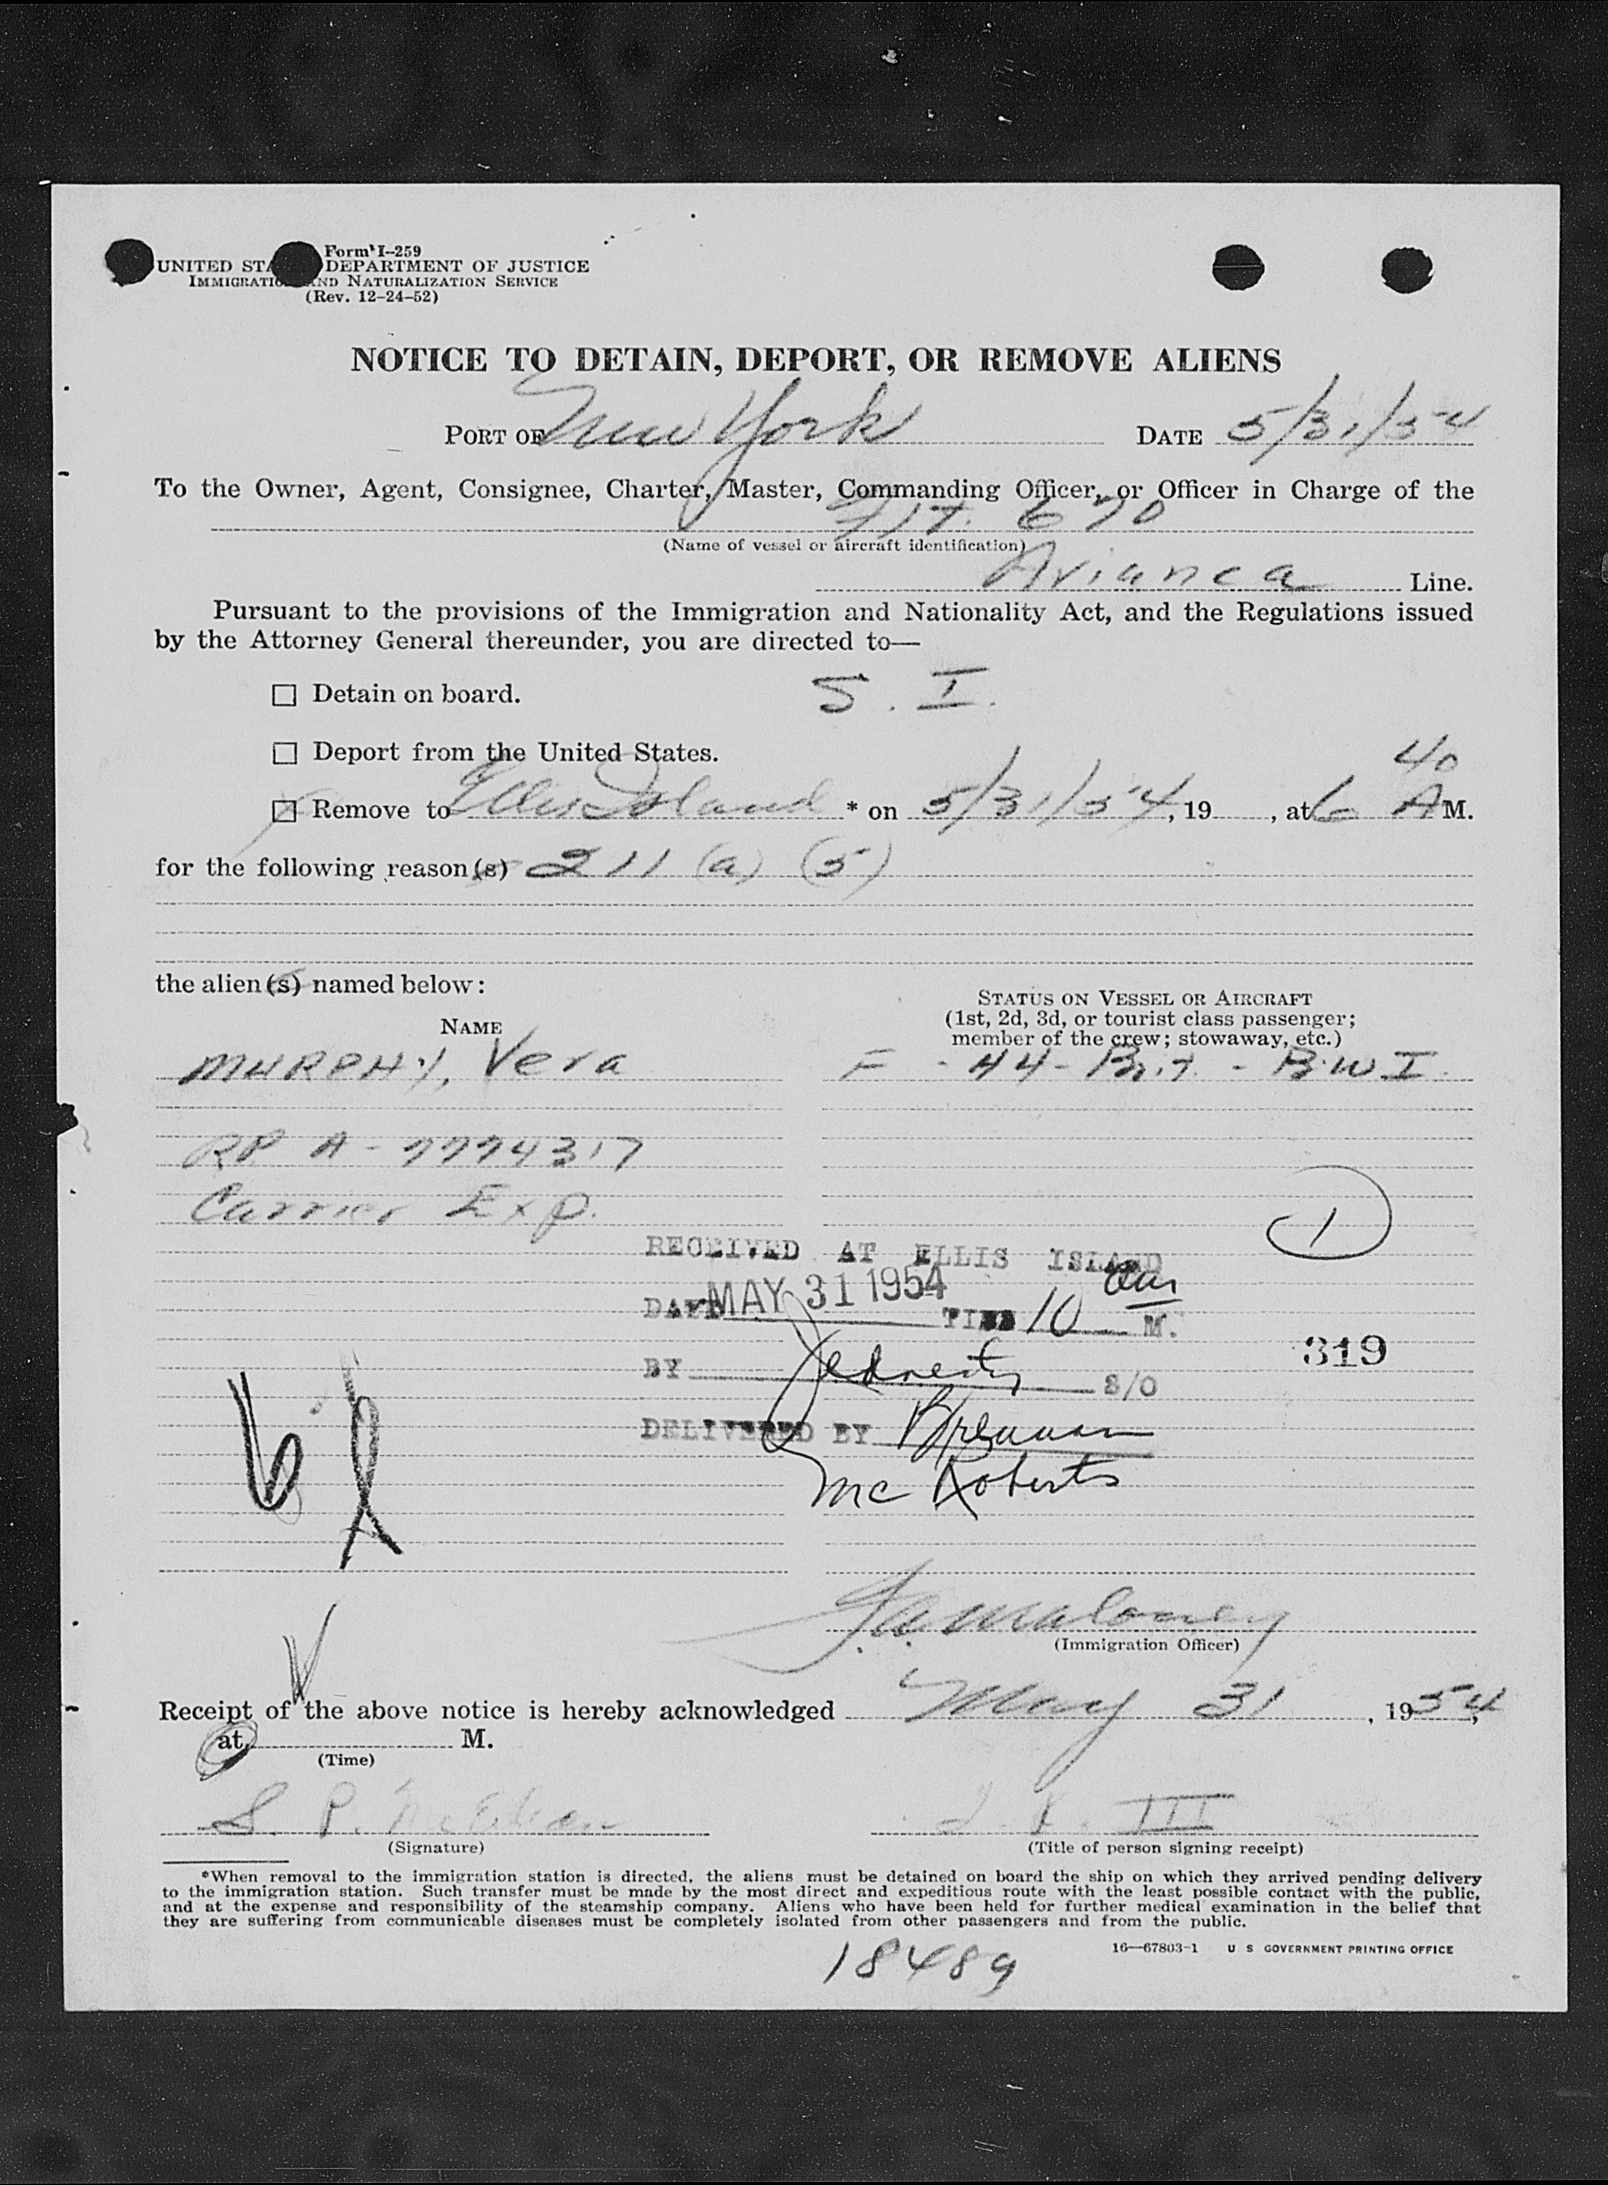 Form I-259
UNITED STA DEPARTMENT OF JUSTICE
IMMIGRATIO AND NATURALIZATION SERVICE
(Rev. 12-24-52)
NOTICE TO DETAIN, DEPORT, OR REMOVE ALIENS
PORT OF New York DATE 5/31/54
To the Owner, Agent, Consignee, Charter, Master, Commanding Officer, or Officer in Charge of the
Flt. 670
(Name of vessel or aircraft identification)
Avianca Line.
Pursuant to the provisions of the Immigration and Nationality Act, and the Regulations issued
by the Attorney General thereunder, you are directed to—
☐ Detain on board. S. I.
☐ Deport from the United States.
40
☒ Remove to Ellis Island * on 5/31/54, 19 , at 6 A M.
for the following reason(s) 211 (a) (5)
the alien(s) named below:
STATUS ON VESSEL OR AIRCRAFT
NAME (1st, 2d, 3d, or tourist class passenger;
member of the crew; stowaway, etc.)
MURPHY, Vera F - 44 - Brit. - B.W.I.
RP A-7774317
Carrier Exp.
1
RECEIVED AT ELLIS ISLAND
DATE MAY 31 1954 TIME 10 am M.
319
BY S/O
DELIVERED BY Brennan
McRoberts
F.A. Maloney
(Immigration Officer)
Receipt of the above notice is hereby acknowledged May 31, 1954,
at M.
(Time)
S. P. III
(Signature) (Title of person signing receipt)
*When removal to the immigration station is directed, the aliens must be detained on board the ship on which they arrived pending delivery
to the immigration station. Such transfer must be made by the most direct and expeditious route with the least possible contact with the public,
and at the expense and responsibility of the steamship company. Aliens who have been held for further medical examination in the belief that
they are suffering from communicable diseases must be completely isolated from other passengers and from the public.
16—67803-1 U S GOVERNMENT PRINTING OFFICE
18489